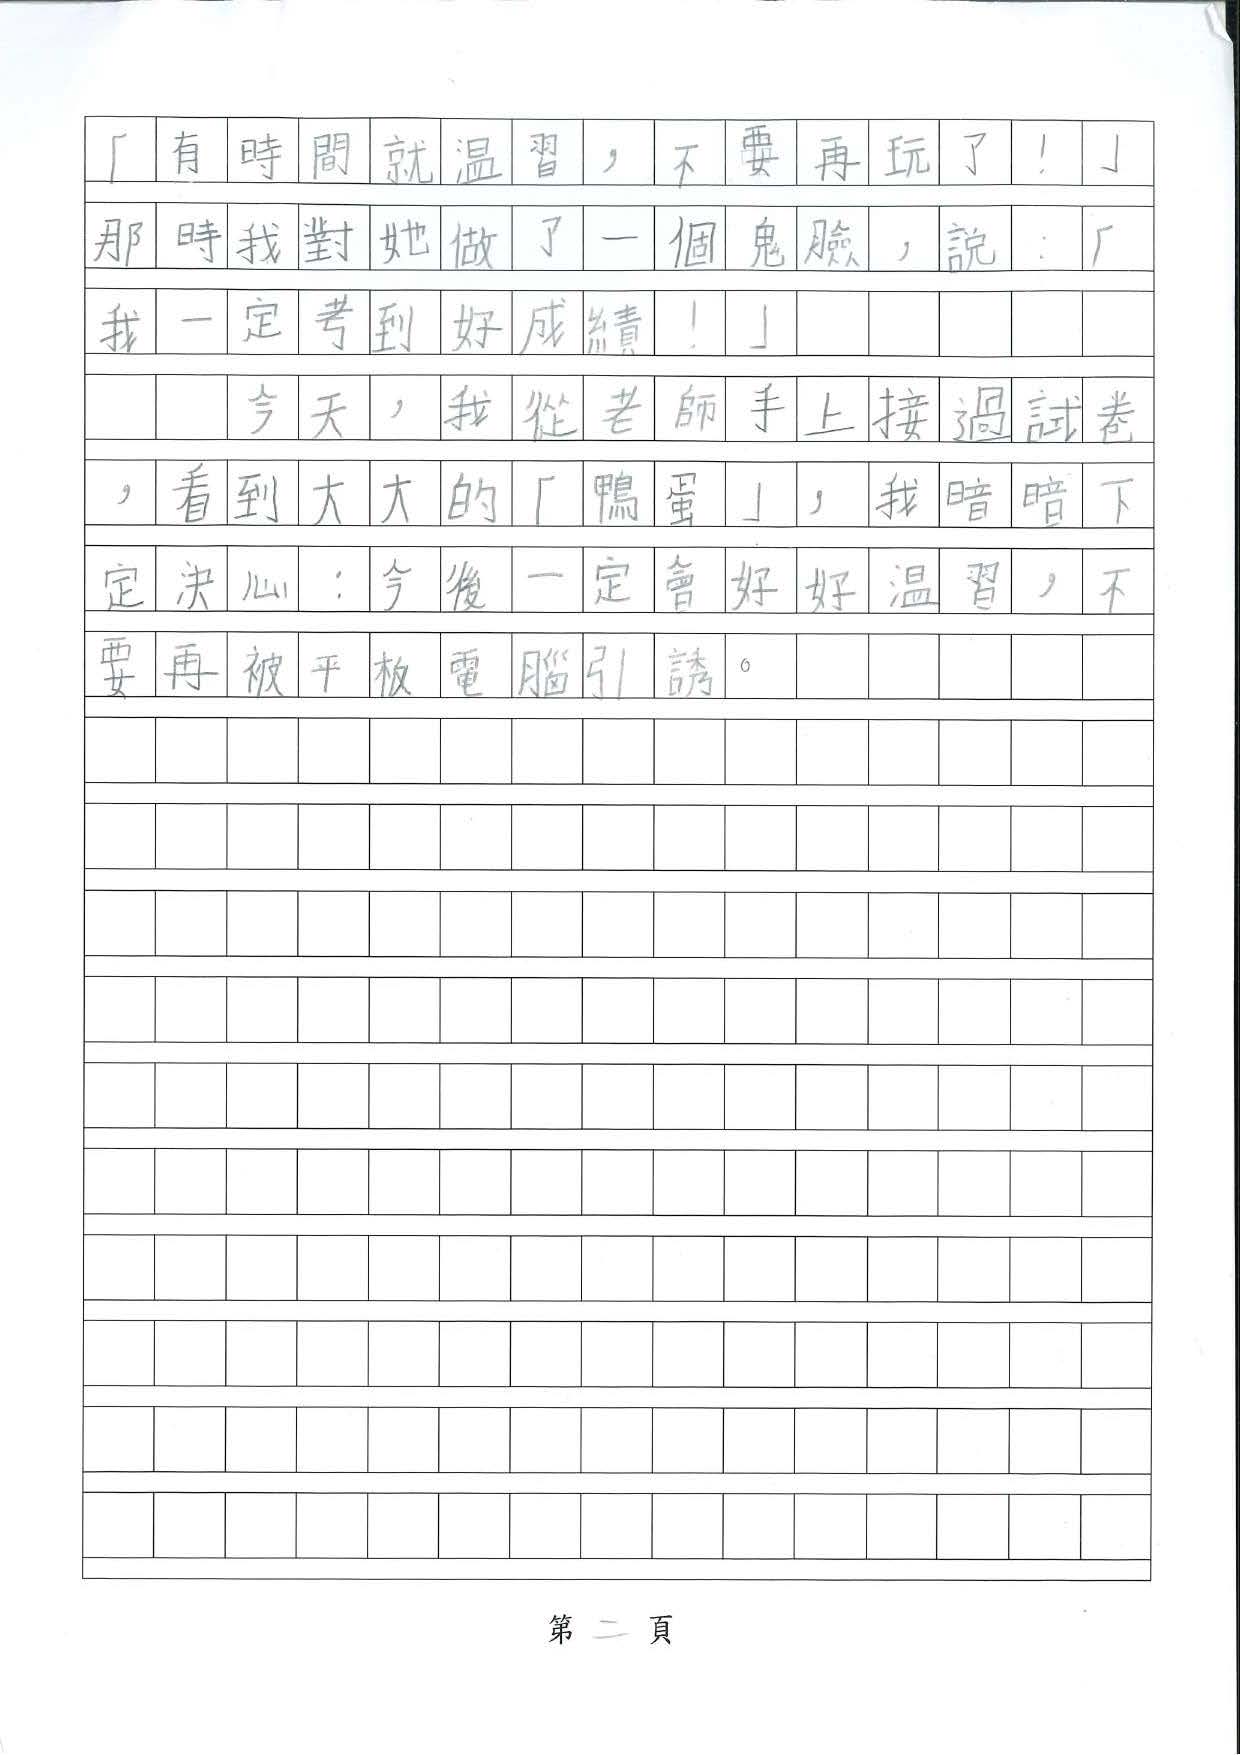 「有時間就温習，不要再玩了！」
那時我對她做了一個鬼臉，説：「
我一定考到好成績！」
今天，我從老師手上接過試卷
，看到大大的「鴨蛋」，我暗暗下
定決心：今後一定會好好温習，不
要再被平板電腦引誘。
第二頁